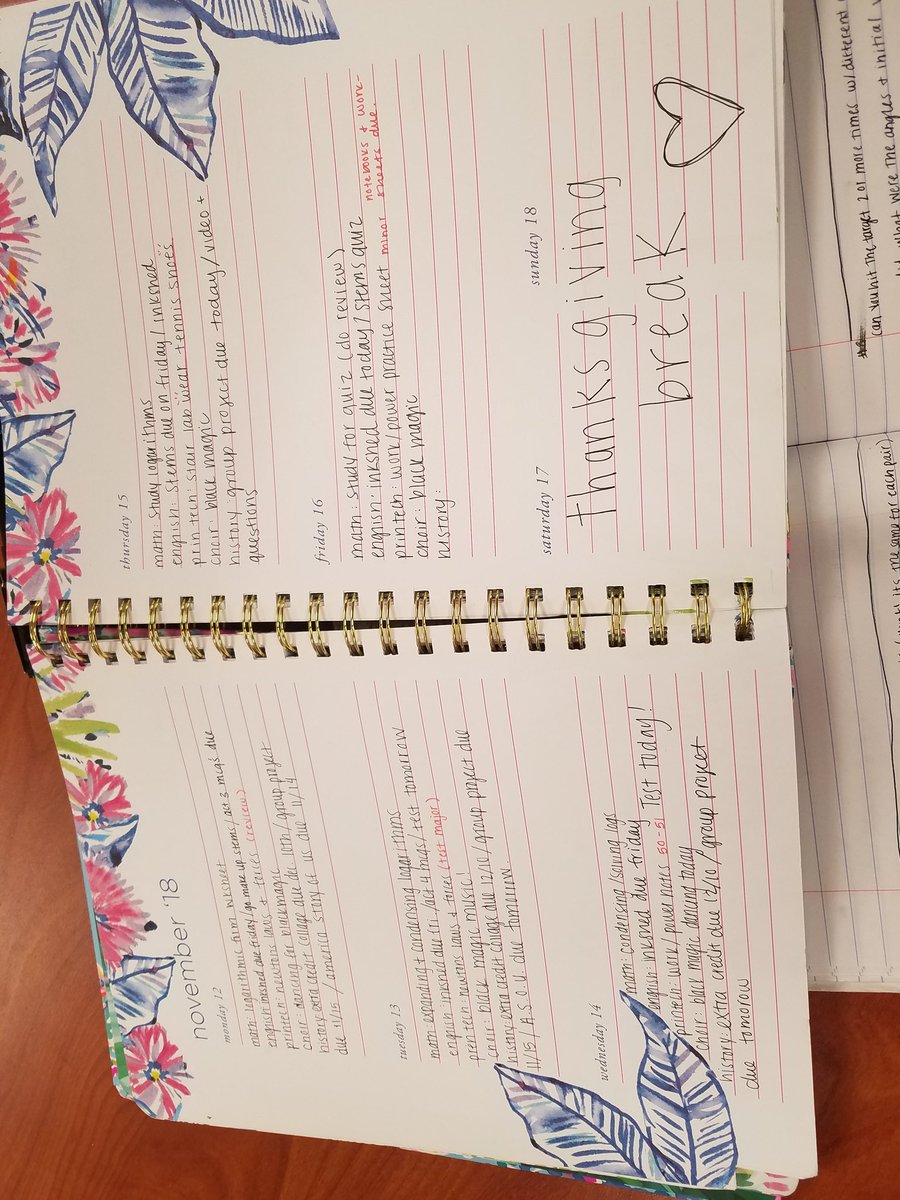 november '18
monday 12
math: logarithmic form wksheet
english: inkshed due friday/go make up stems/act 3 mcq's due
printech: newtons laws + forces (review)
choir: dancing for black magic
history: extra credit collage due dec 10th/group project
due 11/15/america story of us due 11/14
tuesday 13
math: expanding + condensing logarithms
english: inkshed due fri/act 4 mcqs/test tomorrow
printech: newtons laws + forces (test major)
choir: black magic music!
history: extra credit collage due 12/10/group project due
11/15/A.S.O.U due tomorrow
wednesday 14
math: condensing/solving logs
english: inkshed due friday Test today!
printech: work/power notes 50-51
choir: black magic dancing today
history: extra credit due 12/10/group project
due tomorow
thursday 15
math: study logarithms
english: stems due on friday/inkshed
printech: stair lab "wear tennis shoes"
choir: black magic
history: group project due today/video +
questions
friday 16
math: study for quiz (do review)
english: inkshed due today/stems quiz
printech: work/power practice sheet minor notebooks + work-
sheets due.
choir: black magic
history:
saturday 17
sunday 18
thanksgiving
break
can you hit the target 2 or more times w/ different
what were the angles + initial
it's the same for each pair)